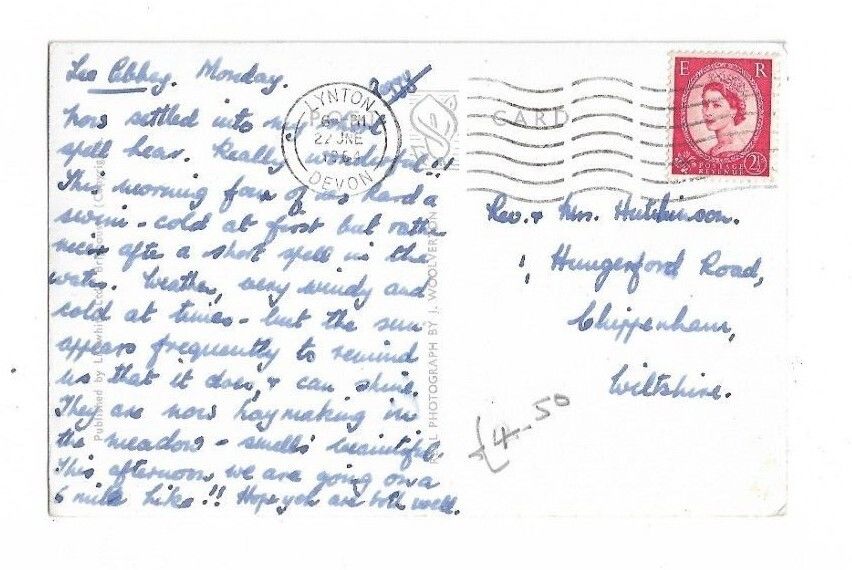 Lee Abbey. Monday.
Now settled into my short
spell hear. Really wonderful!!
This morning four of us had a
swim - cold at first but rather
nice after a short spell in the
water. Weather, very windy and
cold at times - but the sun
appears frequently to remind
us that it does, & can shine.
They are now haymaking in
the meadows - smells beautiful.
This afternoon we are going on a
6 mile hike!! Hope you are both well.
LYNTON
22 JNE
DEVON
CARD
E R
POSTAGE
REVENUE
2½
Rev. & Mrs. Hutchinson.
1, Hungerford Road,
Chippenham,
Wiltshire.
£4-50
REAL PHOTOGRAPH BY J. WOOLVERTON
Published by